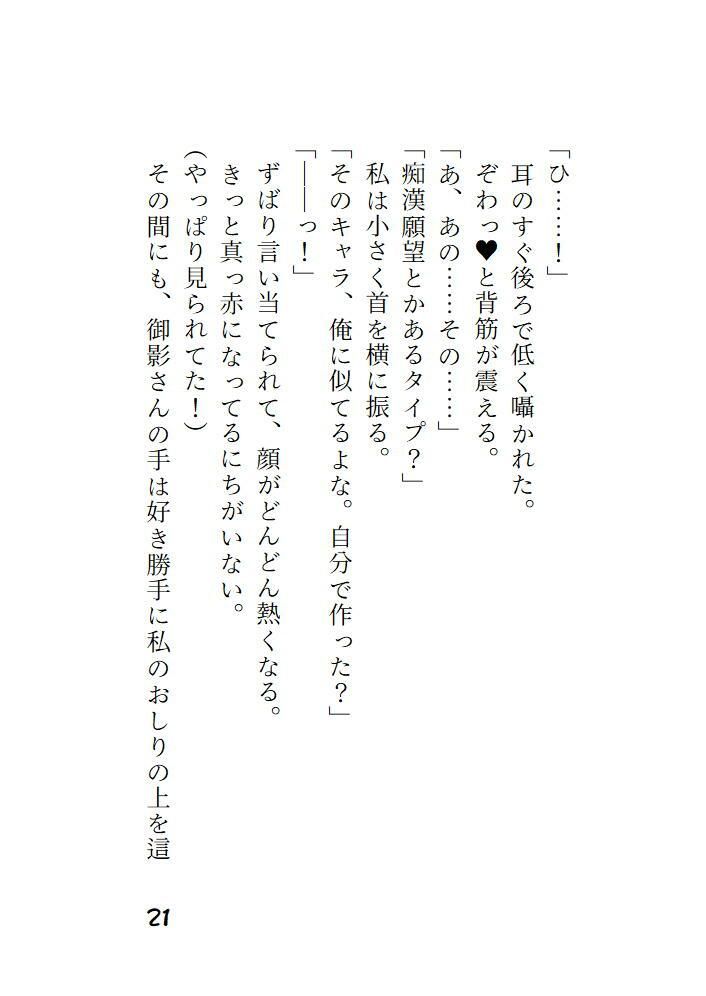 「ひ……！」
耳のすぐ後ろで低く囁かれた。
ぞわっ♥と背筋が震える。
「あ、あの……その……」
「痴漢願望とかあるタイプ？」
私は小さく首を横に振る。
「そのキャラ、俺に似てるよな。自分で作った？」
「――っ！」
ずばり言い当てられて、顔がどんどん熱くなる。
きっと真っ赤になってるにちがいない。
(やっぱり見られてた！)
その間にも、御影さんの手は好き勝手に私のおしりの上を這
21